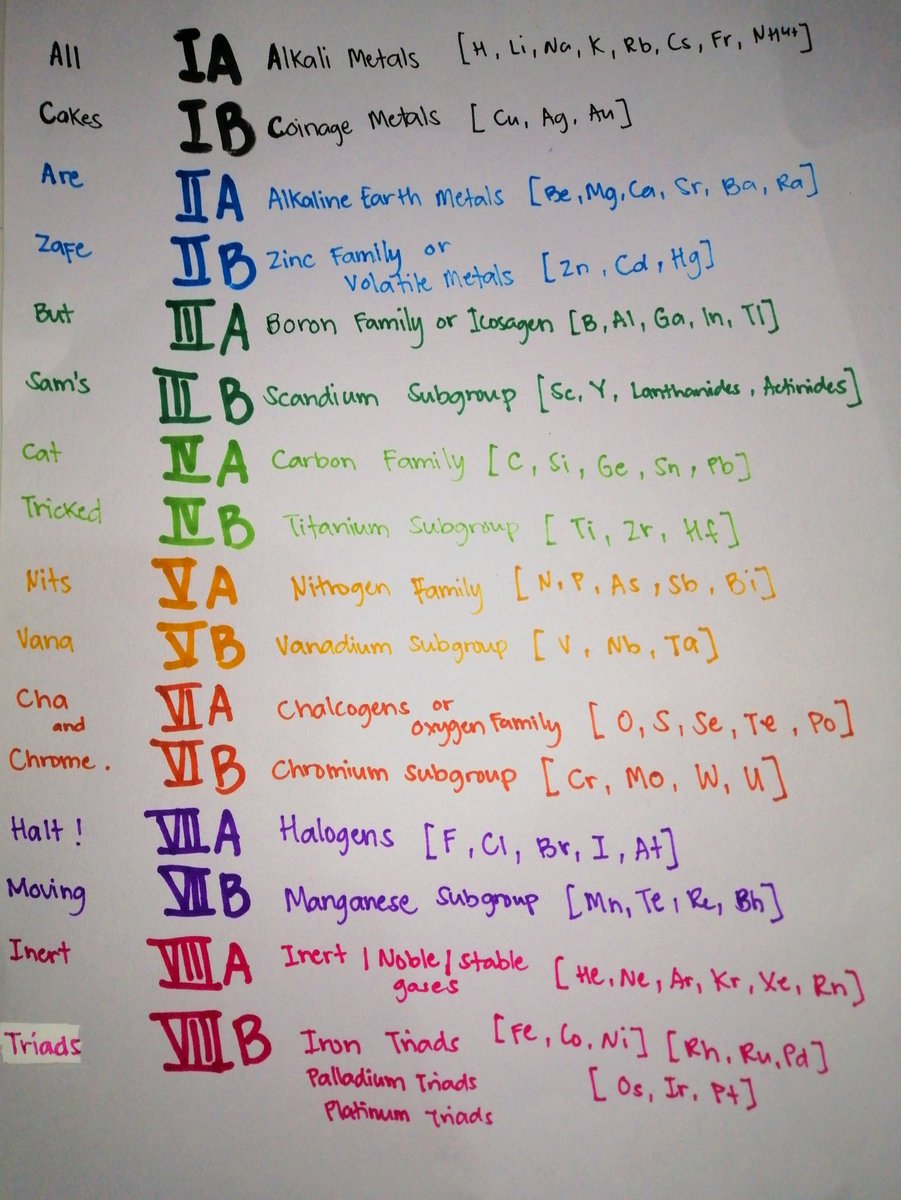 All IA Alkali Metals [H, Li, Na, K, Rb, Cs, Fr, NH4+]
Cakes IB Coinage Metals [Cu, Ag, Au]
Are IIA Alkaline Earth Metals [Be, Mg, Ca, Sr, Ba, Ra]
Zafe IIB Zinc Family or
Volatile Metals [Zn, Cd, Hg]
But IIIA Boron Family or Icosagen [B, Al, Ga, In, Tl]
Sam's IIIB Scandium Subgroup [Sc, Y, Lanthanides, Actinides]
Cat IVA Carbon Family [C, Si, Ge, Sn, Pb]
Tricked IVB Titanium Subgroup [Ti, Zr, Hf]
Nits VA Nitrogen Family [N, P, As, Sb, Bi]
Vana VB Vanadium Subgroup [V, Nb, Ta]
Cha VIA Chalcogens or
and Oxygen Family [O, S, Se, Te, Po]
Chrome. VIB Chromium Subgroup [Cr, Mo, W, U]
Halt! VIIA Halogens [F, Cl, Br, I, At]
Moving VIIB Manganese Subgroup [Mn, Te, Re, Bh]
Inert VIIIA Inert / Noble / Stable
gases [He, Ne, Ar, Kr, Xe, Rn]
Triads VIIIB Iron Triads [Fe, Co, Ni] [Rh, Ru, Pd]
Palladium Triads [Os, Ir, Pt]
Platinum Triads